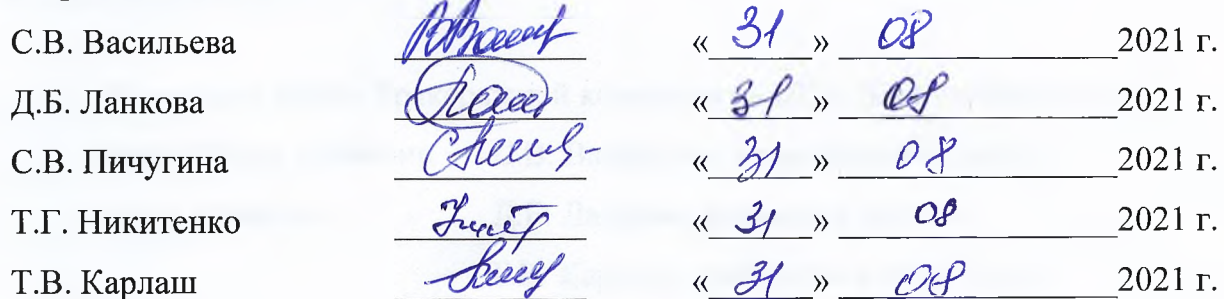 С.В. Васильева « 31 » 08 2021 г.
Д.Б. Ланкова « 31 » 08 2021 г.
С.В. Пичугина « 31 » 08 2021 г.
Т.Г. Никитенко « 31 » 08 2021 г.
Т.В. Карлаш « 31 » 08 2021 г.